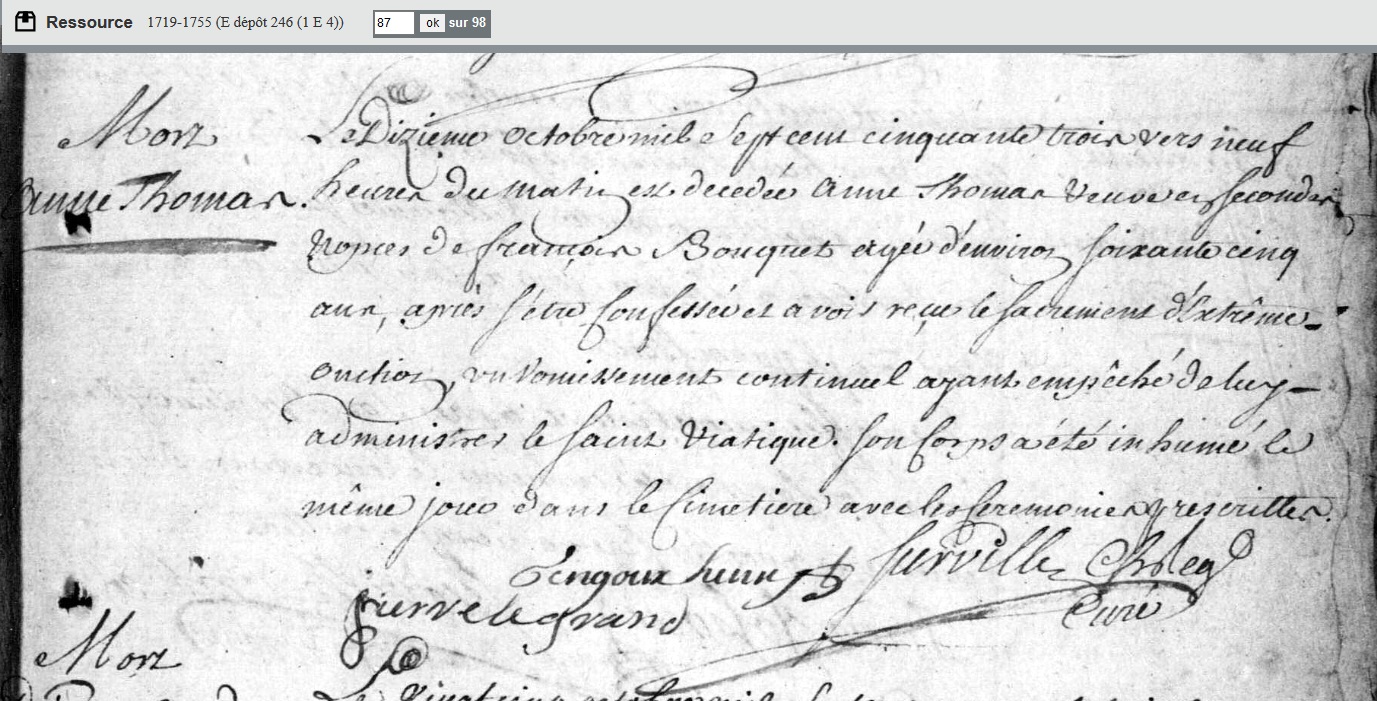 Ressource 1719-1755 (E dépôt 246 (1 E 4)) 87 ok sur 98
Mort
anne Thomas.
Le Dizieme octobre mil Sept cent cinquante trois vers neuf
heures du matin est decedée anne Thomas Veuve en secondes
Nopces de françois Bouquet agée d'environ soixante cinq
ans, après s'être confessée et avoir reçu le sacrement d'Extrême-
onction, un vomissement continuel ayant empêché de luy
administrer le saint Viatique. son corps a été inhumé le
même jour dans le Cimetiere avec les Ceremonies prescrittes.
gengoux henry Surville
pierre le grand Curé
Mort
Le Vingt cinq octobre mil